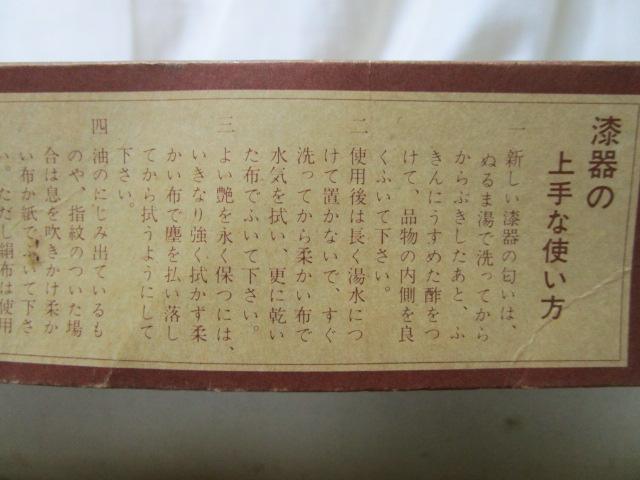 漆器の
上手な使い方
一 新しい漆器の匂いは、
ぬるま湯で洗ってから
からぶきしたあと、ふ
きんにうすめた酢をつ
けて、品物の内側を良
くふいて下さい。
二 使用後は長く湯水につ
けて置かないで、すぐ
洗ってから柔かい布で
水気を拭い、更に乾い
た布でふいて下さい。
三 よい艶を永く保つには、
いきなり強く拭かず柔
かい布で塵を払い落し
てから拭うようにして
下さい。
四 油のにじみ出ているも
のや、指紋のついた場
合は息を吹きかけ柔か
い布か紙でふいて下さ
い。ただし絹布は使用